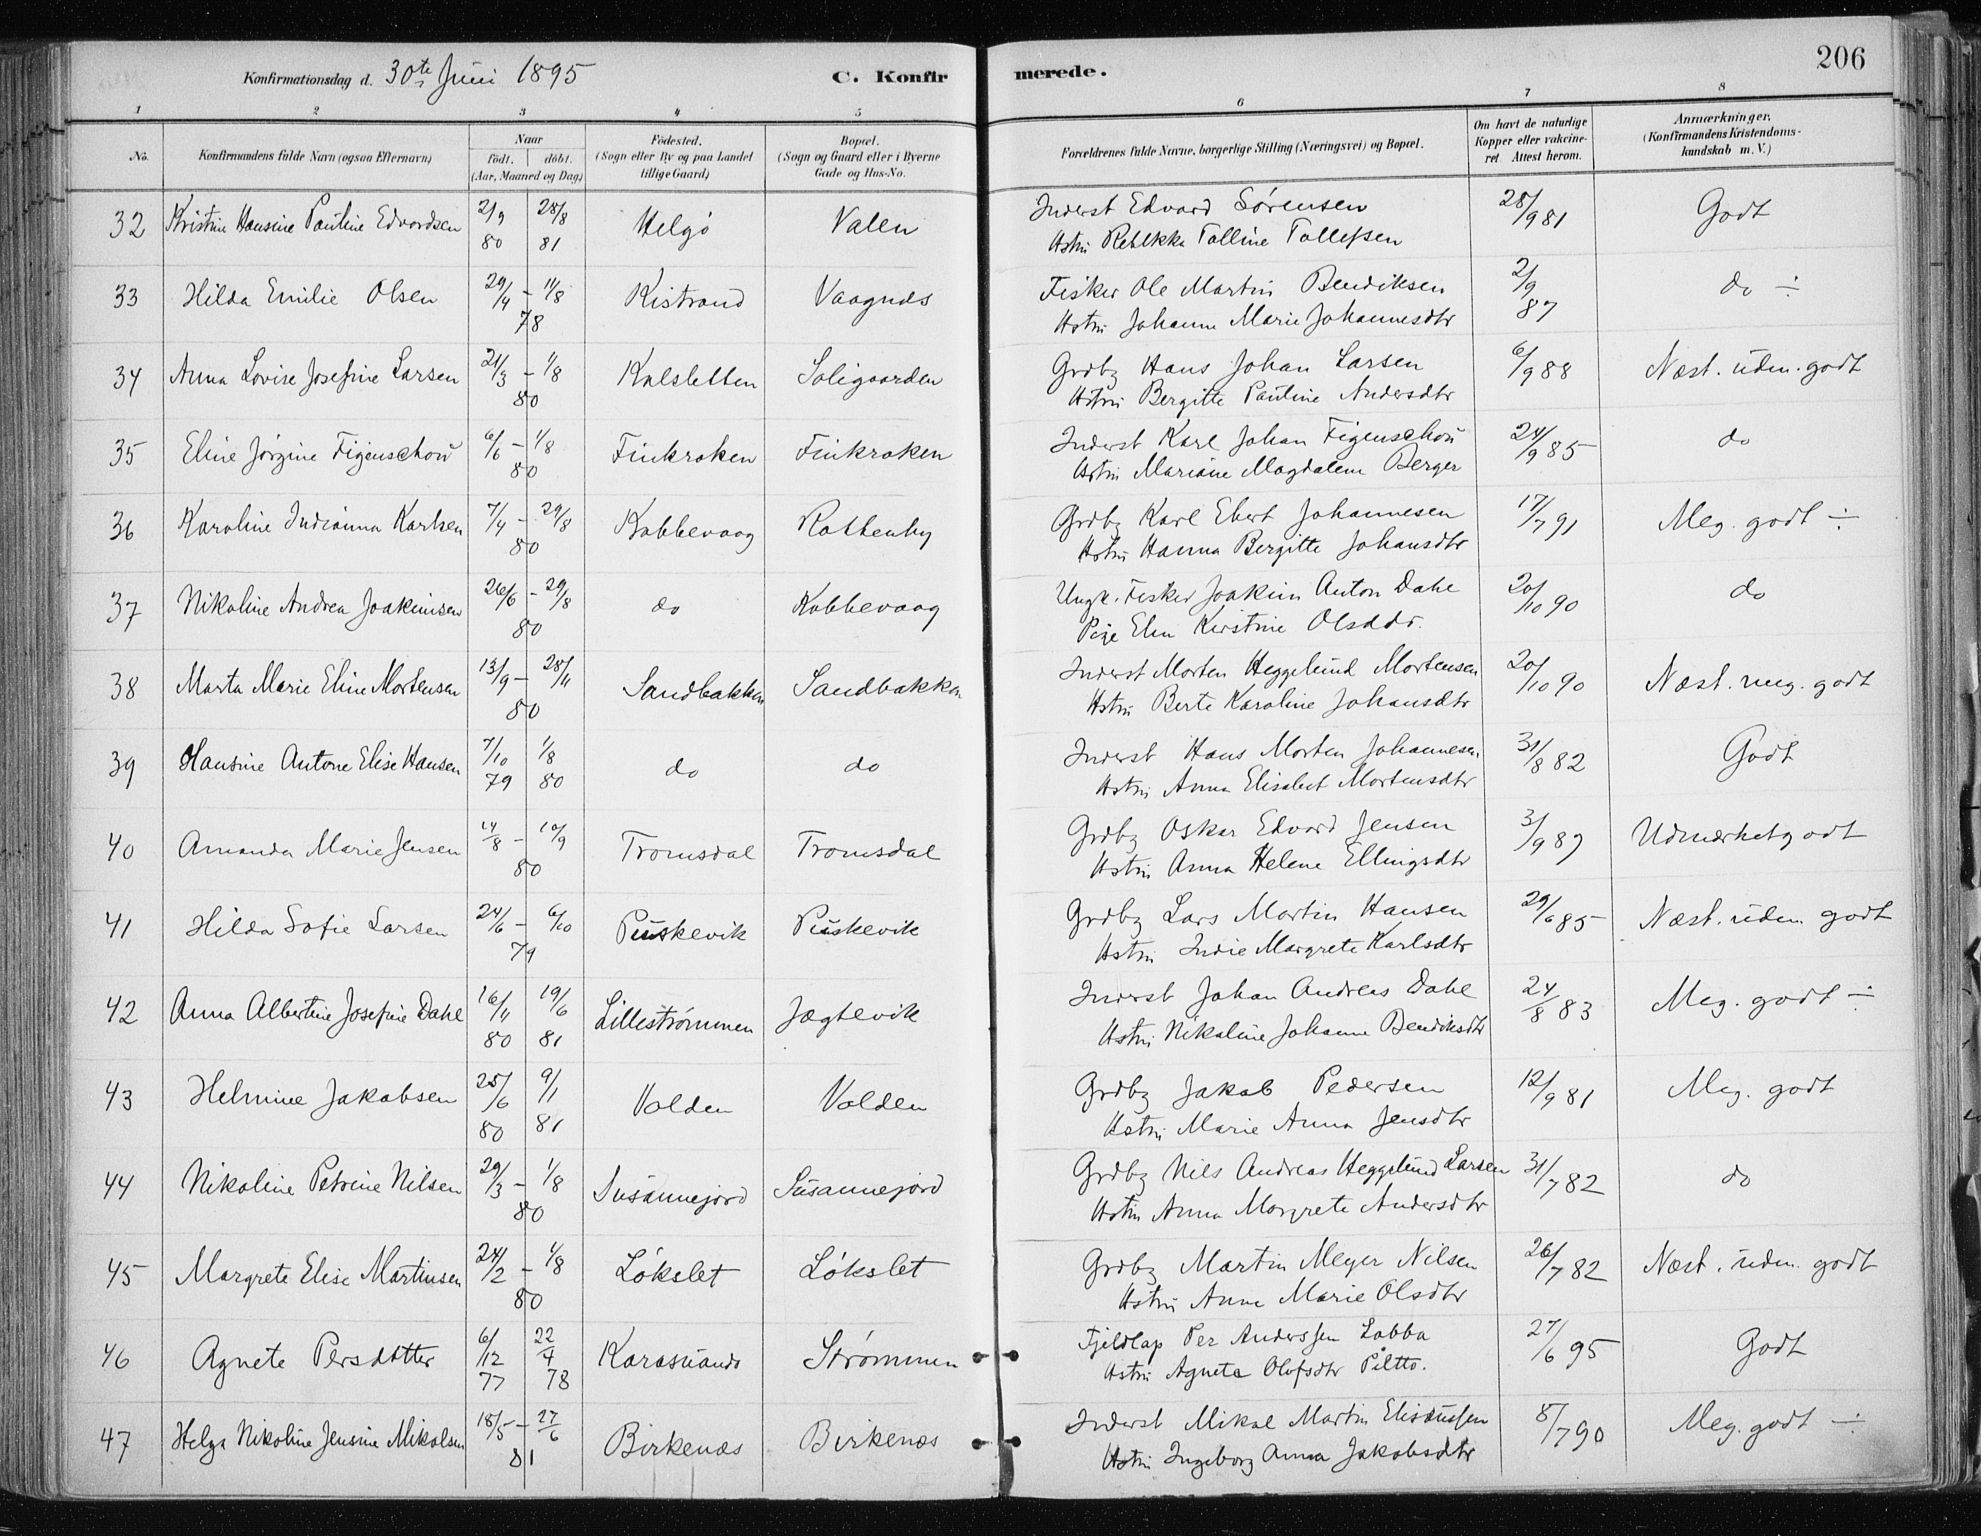 206
Konfirmationsdag d. 30te Juni 1895 C. Konfirmerede.
1 2 3 4 5 6 7 8
No. Konfirmandens fulde Navn (ogsaa Efternavn) Naar født. døbt. (Aar, Maaned og Dag) Fødested. (Sogn eller By og paa Landet tillige Gaard) Bopæl. (Sogn og Gaard eller i Byerne Gade og Hus-No. Forældrenes fulde Navne, borgerlige Stilling (Næringsvei) og Bopæl. Om havt de naturlige Kopper eller vakcineret Attest herom. Anmærkninger. (Konfirmandens Kristendomskundskab m. V.)
32 Kristine Hansine Pauline Edvardsen 2/9 80 28/8 81 Helgö Valen Inderst Edvard Sørensen 28/9 81 Godt
Hstru Rebekka Talline Tollefsen
33 Hilda Emilie Olsen 29/4 – 11/8 78 Kistrand Vaagnes Fisker Ole Martin Bendiksen 2/9 87 do ÷
Hstru Johanne Marie Johannesdtr
34 Anna Lovise Josefine Larsen 21/3 – 1/8 80 Kalsletten Soligaarden Grdbg Hans Johan Larsen 6/9 88 Næst. uden. godt
Hstru Bergitte Pauline Andersdtr
35 Eline Jørgine Figenschou 6/6 – 1/8 80 Finkroken Finkroken Inderst Karl Johan Figenschou 24/9 85 do
Hstru Mariane Magdalena Berger
36 Karoline Indianna Karlsen 7/4 – 29/8 80 Kobbevaag Kathenby Grdbg Karl Ebert Johannesen 17/7 91 Meg. godt ÷
Hstru Hanna Bergitte Johansdtr
37 Nikoline Andrea Joakimsen 26/6 – 29/8 80 do Kobbevaag Ungk. Fisker Joakim Anton Dahl 20/10 90 do
Pige Elen Kirstine Olsdtr.
38 Marta Marie Eline Mortensen 13/9 – 28/11 80 Sandbakken Sandbakken Inderst Morten Heggelund Mortensen 20/10 90 Næst. meg. godt
Hstru Berte Karoline Johansdtr
39 Hansine Antone Elise Hansen 7/10 79 1/8 80 do do Inderst Hans Morten Johannesen 31/8 82 Godt
Hstru Anna Elisabet Mortensdtr
40 Amanda Marie Jensen 14/8 – 10/9 80 Tromsdal Tromsdal Grdbg Oskar Edvard Jensen 3/9 87 Udmærket godt
Hstru Anna Helene Ellingsdtr
41 Hilda Sofie Larsen 24/6 – 6/10 79 Piuskevik Piuskevik Grdbg Lars Martin Hansen 29/6 85 Næst. uden godt
Hstru Indie Margrete Karlsdtr
42 Anna Albertine Josefine Dahl 16/11 80 19/6 81 Lillestrømmen Jægtevik Inderst Johan Andreas Dahl 24/8 83 Meg. godt ÷
Hstru Nikoline Johanne Bendiksdtr
43 Helmine Jakobsen 25/6 80 9/1 81 Volden Volden Grdbg Jakob Pedersen 12/9 81 Meg. godt
Hstru Marie Anna Jensdtr
44 Nikoline Petrine Nilsen 29/3 – 1/8 80 Susannejord Susannejord Grdbg Nils Andreas Heggelund Larsen 31/7 82 do
Hstru Anna Margrete Andersdtr
45 Margrete Elise Martinsen 24/2 – 1/8 80 Løkslet Løkslet Grdbg Martin Meyer Nilsen 26/7 82 Næst. uden. godt
Hstru Anne Marie Olsdtr
46 Agnete Persdatter 6/12 77 22/4 78 Karasuando Strømmen Fjeldlap Per Anderssen Labba 27/6 95 Godt
Hstru Agneta Olofsdtr Piltto.
47 Helga Nikoline Jensine Mikalsen 18/5 – 27/6 81 Birkenæs Birkenæs Inderst Mikal Martin Eliseussen 8/7 90 Meg. godt ÷
Hstru Ingeborg Anna Jakobsdtr